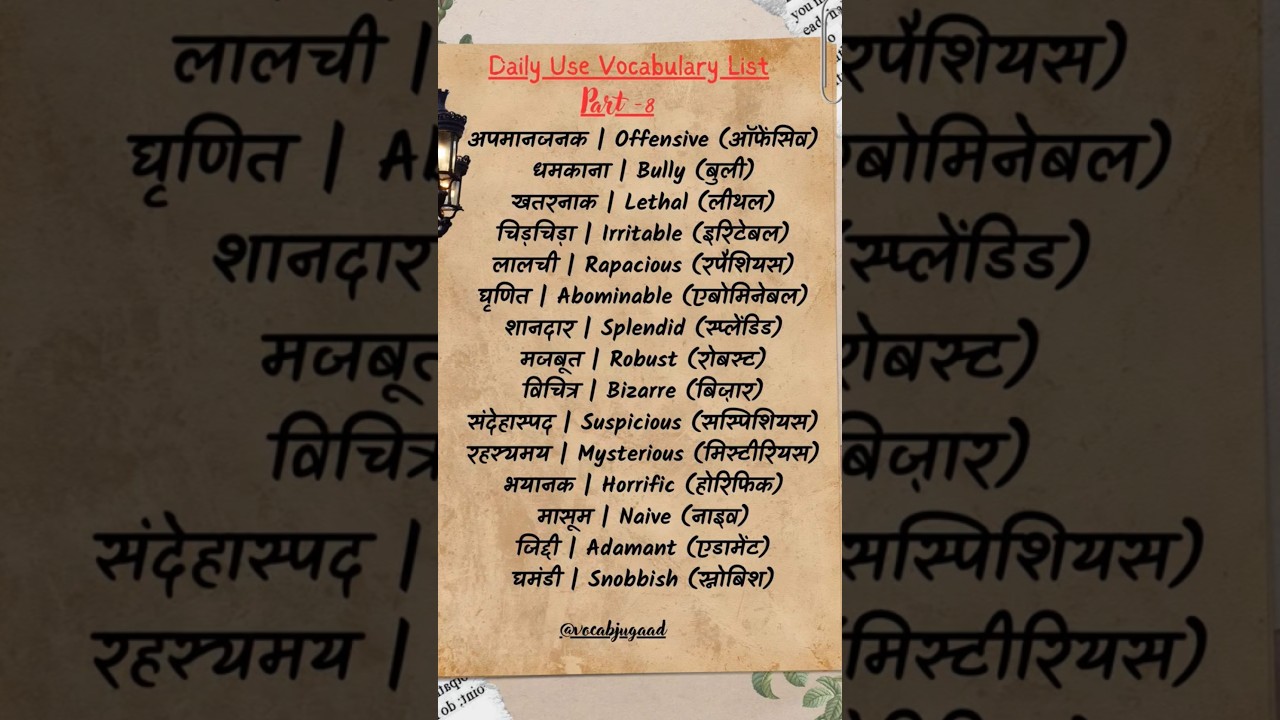 Daily Use Vocabulary List
Part -8
अपमानजनक | Offensive (ऑफेंसिव)
धमकाना | Bully (बुली)
खतरनाक | Lethal (लीथल)
चिड़चिड़ा | Irritable (इरिटेबल)
लालची | Rapacious (रपैशियस)
घृणित | Abominable (एबोमिनेबल)
शानदार | Splendid (स्प्लेंडिड)
मजबूत | Robust (रोबस्ट)
विचित्र | Bizarre (बिज़ार)
संदेहास्पद | Suspicious (सस्पिशियस)
रहस्यमय | Mysterious (मिस्टीरियस)
भयानक | Horrific (होरिफिक)
मासूम | Naive (नाइव)
जिद्दी | Adamant (एडामेंट)
घमंडी | Snobbish (स्नोबिश)
@vocabjugaad